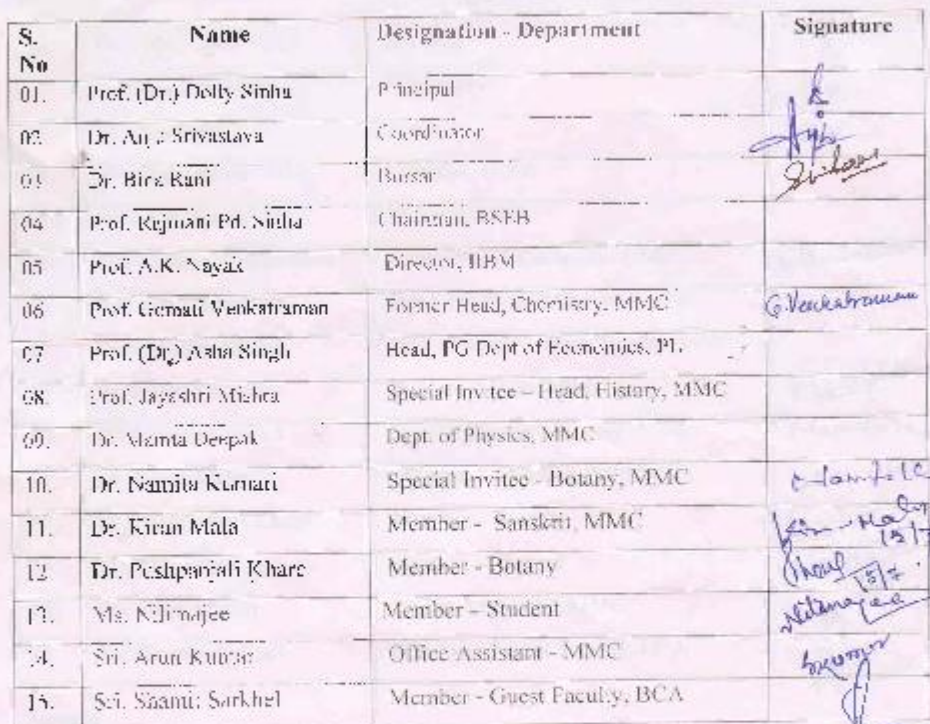 S. No Name Designation - Department Signature
01. Prof. (Dr.) Dolly Sinha Principal
02. Dr. Srivastava Coordinator
03. Dr. Rani Bursar
04. Prof. Pd. Sinha Chairman, BSEB
05. Prof. A.K. Nayak Director, IIBM
06 Prof. Gomati Venkatraman Former Head, Chemistry, MMC G.Venkatraman
07 Prof. (Dr.) Asha Singh Head, PG Dept of Economics,
08. Prof. Jayashri Mishra Special Invitee – Head, History, MMC
09. Dr. Mamta Deepak Dept. of Physics, MMC
10. Dr. Namita Kumari Special Invitee - Botany, MMC
11. Dr. Kiran Mala Member - Sanskrit, MMC
12 Dr. Pushpanjali Khare Member - Botany
13. Ms. Nilimajee Member – Student
14. Sri. Arun Kumar Office Assistant - MMC
15. Sri. Sarkhel Member - Guest Faculty, BCA